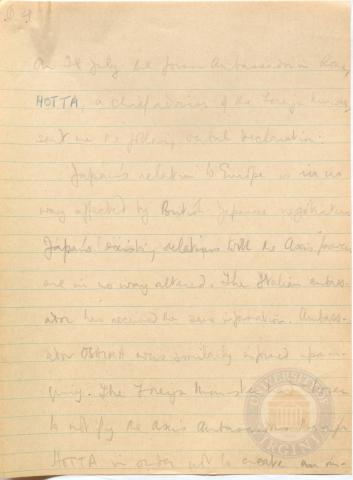 On 28 July the former Ambassador in Rome,
HOTTA, a chief adviser of the Foreign Minister,
sent me the following verbal declaration:
"Japan's relation to Europe is in no
way affected by British Japanese negotiations
Japan's existing relations with the Axis powers
are in no way altered. The Italian ambass-
ador has received the same information. Ambass-
ador OSHIMA was similarly informed
The Foreign Minister
to notify the Axis Ambassadors through
HOTTA in order not to create an
UNIVERSITY VIRGINIA